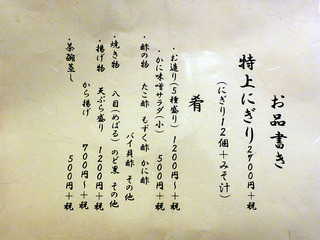 お品書き
特上にぎり2700円+税
(にぎり12個+みそ汁)
肴
・お造り(5種盛り)1200円〜+税
・かに味噌サラダ(小)500円+税
・酢の物 たこ酢 もずく酢 かに酢
バイ貝酢 その他
・焼き物 八目(めばる) のど黒 その他
・揚げ物 天ぷら盛り 1200円+税
から揚げ 700円〜+税
・茶碗蒸し 500円+税